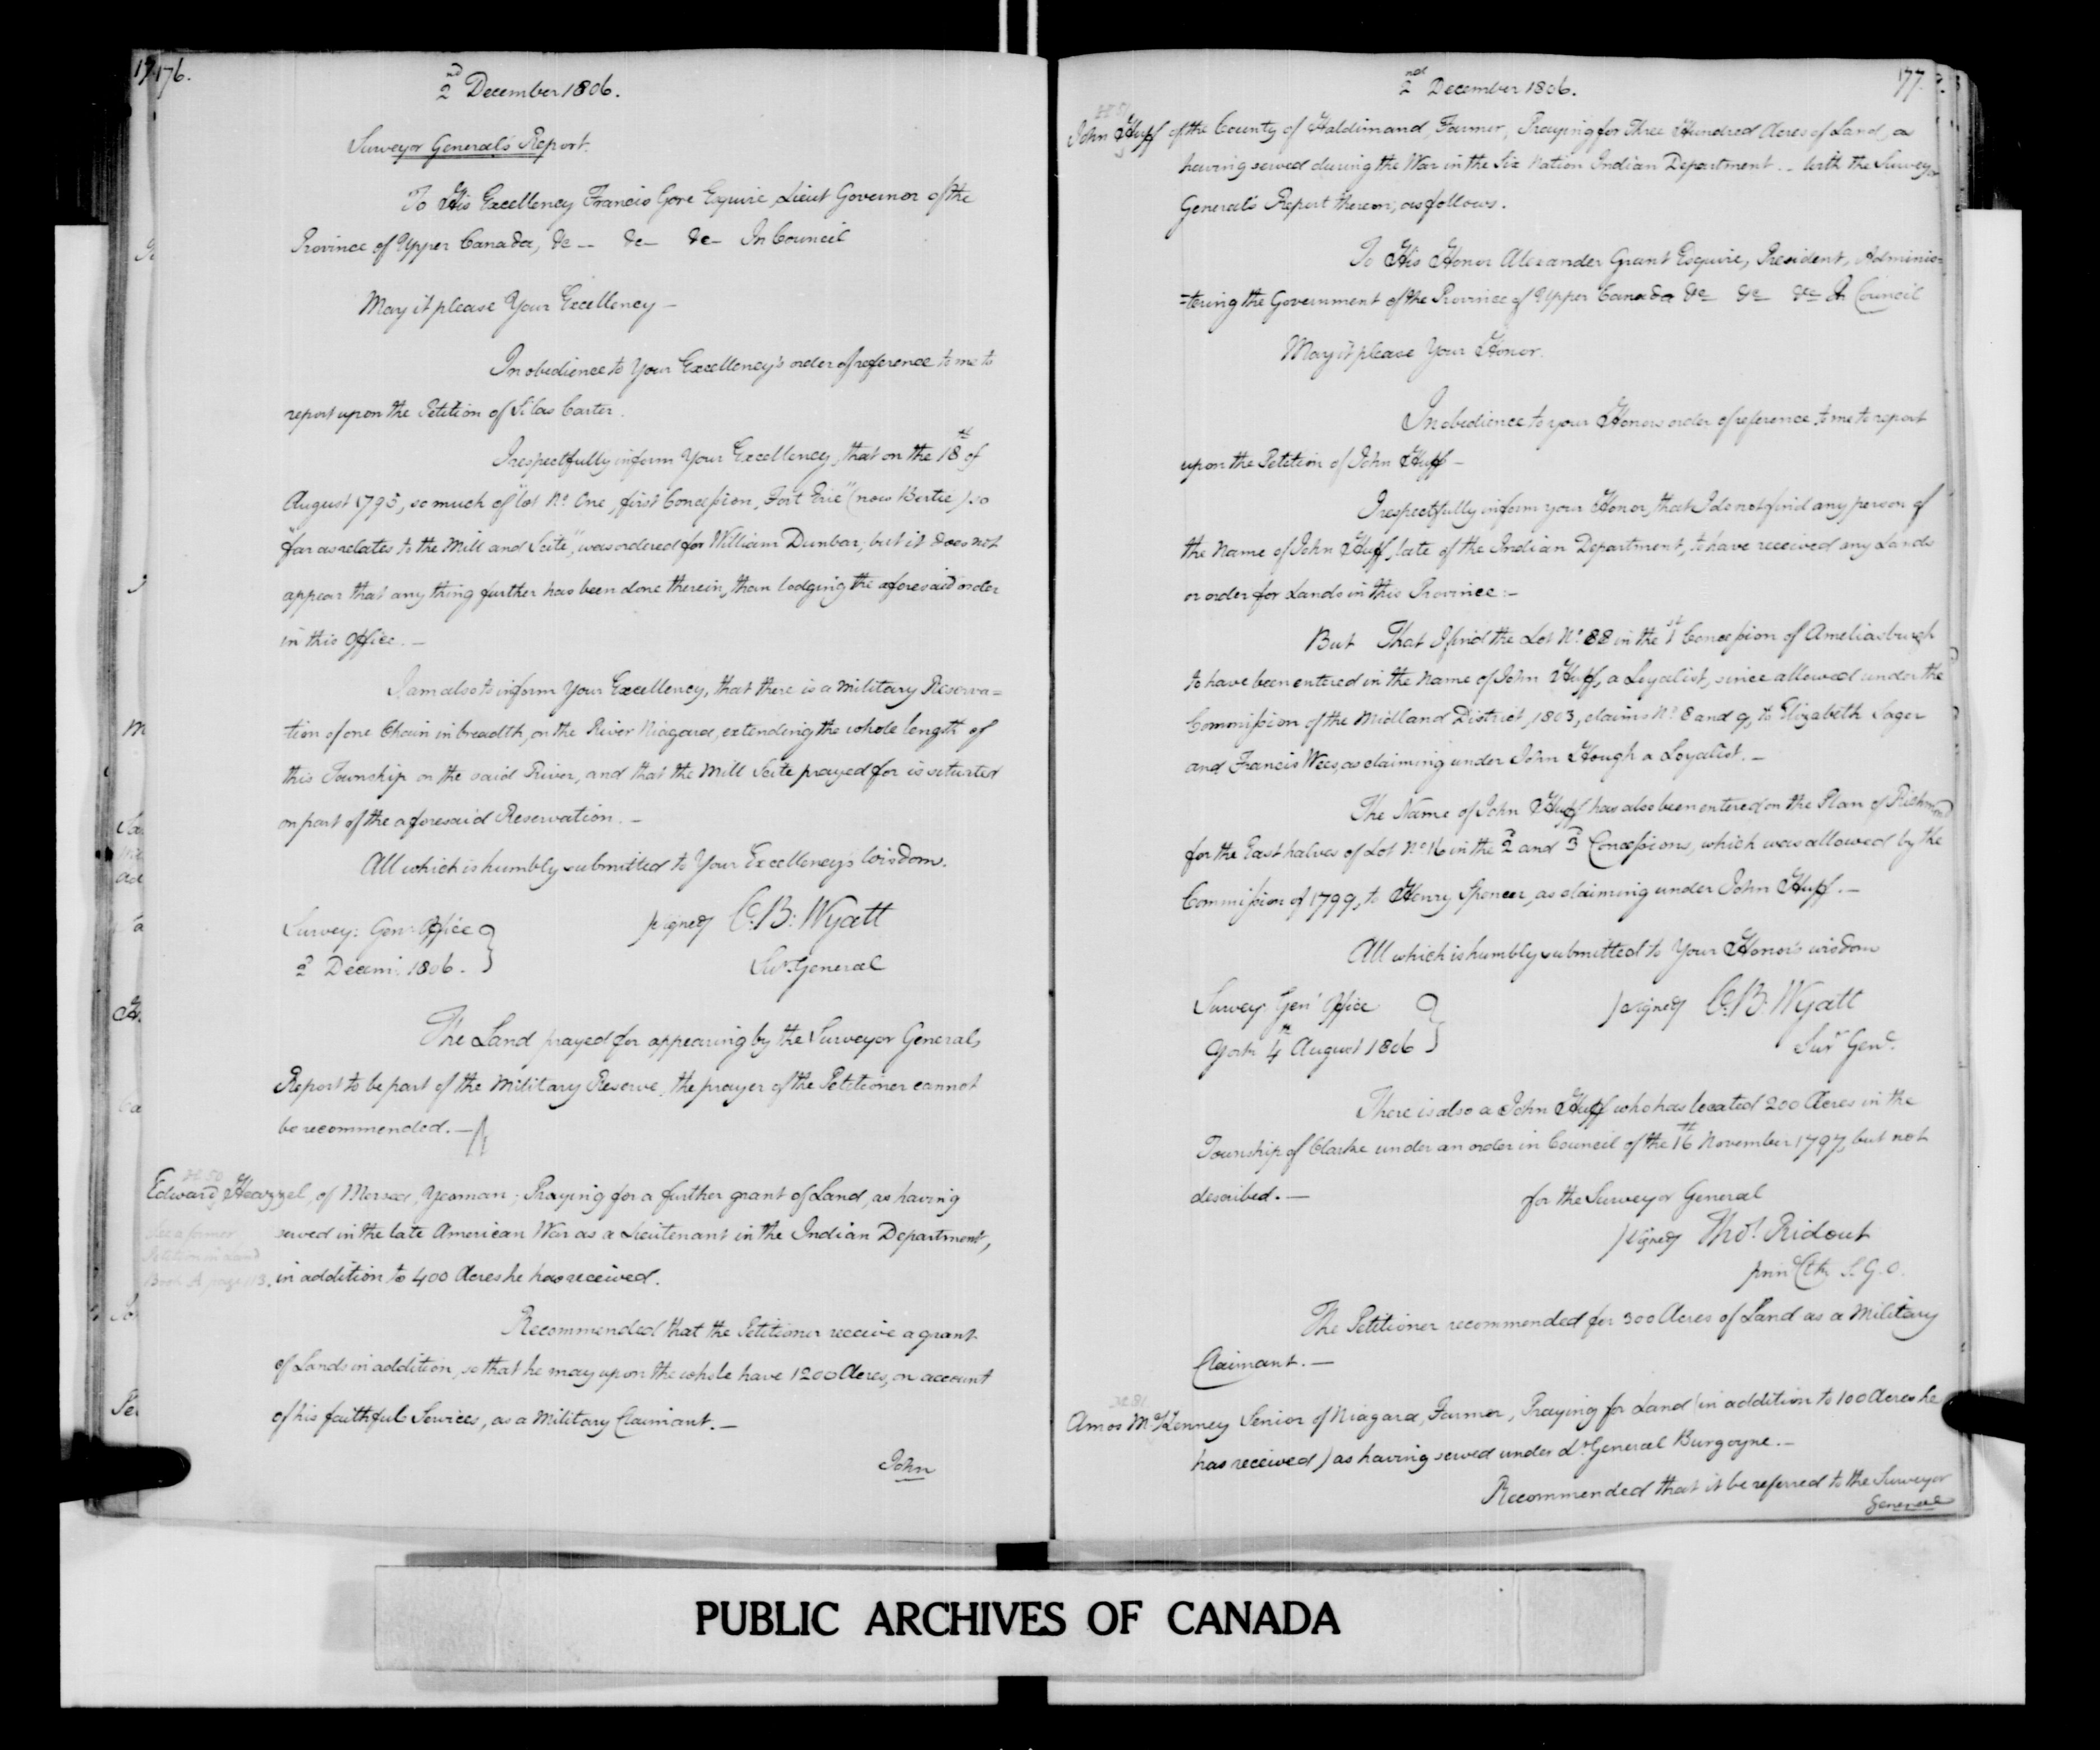 176.
2nd December 1806.
Surveyor General's Report.
To His Excellency Francis Gore Esquire Lieut Governor of the
Province of Upper Canada, &c -- &c - &c - In Council
May it please Your Excellency -
In obedience to Your Excellency's order of reference to me to
report upon the Petition of Silas Carter.
I respectfully inform Your Excellency, that on the 18th of
August 1795, so much of "lot No. One, first Concession, Fort Erie" (now Bertie) so
"far as relates to the Mill and Scite", was ordered for William Dunbar; but it does not
appear that any thing further has been done therein, than lodging the aforesaid order
in this Office. -
I am also to inform Your Excellency, that there is a Military Reserva=
tion of one Chain in breadth, on the River Niagara, extending the whole length of
this Township on the said River, and that the Mill Scite prayed for is situated
on part of the aforesaid Reservation. -
All which is humbly submitted to Your Excellency's Wisdom.
Survey: Genl. Office
2d Decem: 1806.
signed C. B. Wyatt
Sur. General
The Land prayed for appearing by the Surveyor Generals
Report to be part of the Military Reserve, the prayer of the Petitioner cannot
be recommended. -
Edward Heazzel, of Mersea, Yeoman; Praying for a further grant of Land, as having
served in the late American War as a Lieutenant in the Indian Department,
See a former
Petition in Land
Book A page 13.
in addition to 400 Acres he has received.
Recommended that the Petitioner receive a grant
of Lands in addition, so that he may upon the whole have 1200 Acres, on account
of his faithful Services, as a Military Claimant. -
John
2nd December 1806.
177.
John Huff of the County of Haldimand, Farmer, Praying for Three Hundred Acres of Land, as
having served during the War in the Six Nation Indian Department -- With the Surveyor
General's Report thereon, as follows.
To His Honor Alexander Grant Esquire, President, Adminis-
-tering the Government of the Province of Upper Canada &c &c &c In Council
May it please Your Honor.
In obedience to your Honors order of reference to me to report
upon the Petition of John Huff -
I respectfully inform your Honor, that I do not find any person of
the name of John Huff, late of the Indian Department, to have received any Lands
or order for Lands in this Province :-
But That I find the Lot No. 88 in the 1st Concession of Ameliasburgh
to have been entered in the name of John Huff, a Loyalist, since allowed under the
Commission of the Midland District, 1803, claims No. 8 and 9, to Elizabeth Sager
and Francis Wees, as claiming under John Hough a Loyalist. -
The Name of John Huff has also been entered on the Plan of Richmond
for the East halves of Lot No. 16 in the 2d and 3d Concessions, which was allowed by the
Commission of 1799, to Henry Spencer, as claiming under John Huff. -
All which is humbly submitted to Your Honor's wisdom
Survey. Genl Office
York 4th August 1806
signed C. B. Wyatt
Surr Genl.
There is also a John Huff who has located 200 Acres in the
Township of Clarke under an order in Council of the 16th November 1797, but not
described. -
for the Surveyor General
signed Thos. Ridout
prin. Clk. S. G. O.
The Petitioner recommended for 300 Acres of Land as a Military
Claimant. -
Amos McKenney Senior of Niagara, Farmer, Praying for Land (in addition to 100 Acres he
has received) as having served under Lt. General Burgoyne. -
Recommended that it be referred to the Surveyor
General
PUBLIC ARCHIVES OF CANADA